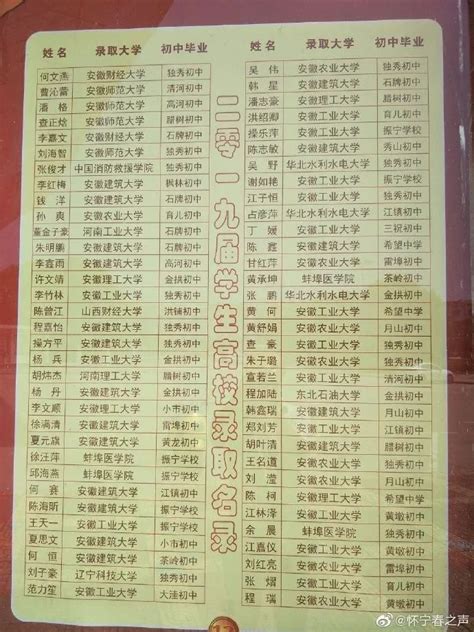 姓名 录取大学 初中毕业
何文燕 安徽财经大学 独秀初中
曹沁蕾 安徽师范大学 清河初中
潘格 安徽师范大学 高河初中
查正焓 安徽师范大学 腊树初中
李嘉文 安徽财经大学 石牌初中
刘海智 安徽师范大学 独秀初中
张俊才 中国消防救援学院 独秀初中
李红梅 安徽建筑大学 枫林初中
钱洋 安徽农业大学 石牌初中
孙爽 安徽农业大学 育儿初中
董金子豪 河南工业大学 石牌初中
朱明鹏 安徽建筑大学 石牌初中
李鑫雨 安徽建筑大学 高河初中
许文靖 安徽理工大学 金拱初中
李竹林 安徽工业大学 独秀初中
陈曾江 山西财经大学 洪铺初中
程嘉怡 安徽建筑大学 独秀初中
操方平 安徽建筑大学 独秀初中
杨兵 安徽工业大学 金拱初中
胡炜杰 河南理工大学 腊树初中
杨丹 安徽理工大学 金拱初中
李文顺 安徽理工大学 小市初中
徐滈清 安徽工业大学 雷埠初中
夏元旗 安徽建筑大学 黄龙初中
徐汪萍 蚌埠医学院 振宁学校
邱海燕 蚌埠医学院 振宁学校
何赛 安徽建筑大学 江镇初中
陈海昕 安徽建筑大学 振宁学校
王天一 安徽工业大学 振宁学校
夏思文 安徽工业大学 小市初中
何恒 安徽建筑大学 茶岭初中
刘子豪 辽宁科技大学 独秀初中
范力笙 安徽工业大学 大洼初中
二零一九届学生高校录取名录
姓名 录取大学 初中毕业
吴伟 安徽农业大学 独秀初中
韩星 安徽建筑大学 石牌初中
潘志豪 安徽理工大学 腊树初中
洪绍卿 安徽工业大学 育儿初中
操乐萍 安徽工业大学 振宁学校
陈志敏 安徽建筑大学 秀山初中
吴野 华北水利水电大学 独秀初中
谢如艳 安徽工业大学 振宁学校
江子恒 安徽工业大学 独秀初中
占彦萍 华北水利水电大学 江镇初中
丁媛 安徽工业大学 三祝初中
陈鑫 安徽建筑大学 希望中学
甘红萍 安徽农业大学 雷埠初中
黄承坤 蚌埠医学院 茶岭初中
张鹏 华北水利水电大学 金拱初中
黄何 安徽工业大学 希望中学
黄舒娟 安徽农业大学 月山初中
查豪 安徽工业大学 独秀初中
朱子璐 安徽农业大学 独秀初中
宣若兰 安徽工业大学 清河初中
程加陆 东北石油大学 金拱初中
韩鑫瑞 安徽建筑大学 月山初中
郑刘芳 安徽工业大学 独秀初中
胡叶清 安徽建筑大学 腊树初中
王名道 安徽农业大学 独秀初中
刘滢 安徽农业大学 月山初中
陈柯 安徽理工大学 希望中学
江林泽 安徽工业大学 黄墩初中
余晨 蚌埠医学院 月山初中
江嘉仪 安徽工业大学 黄墩初中
刘红亮 安徽农业大学 雷埠初中
张熠 安徽工业大学 育儿初中
程瑞 安徽农业大学 黄墩初中
@怀宁春之声